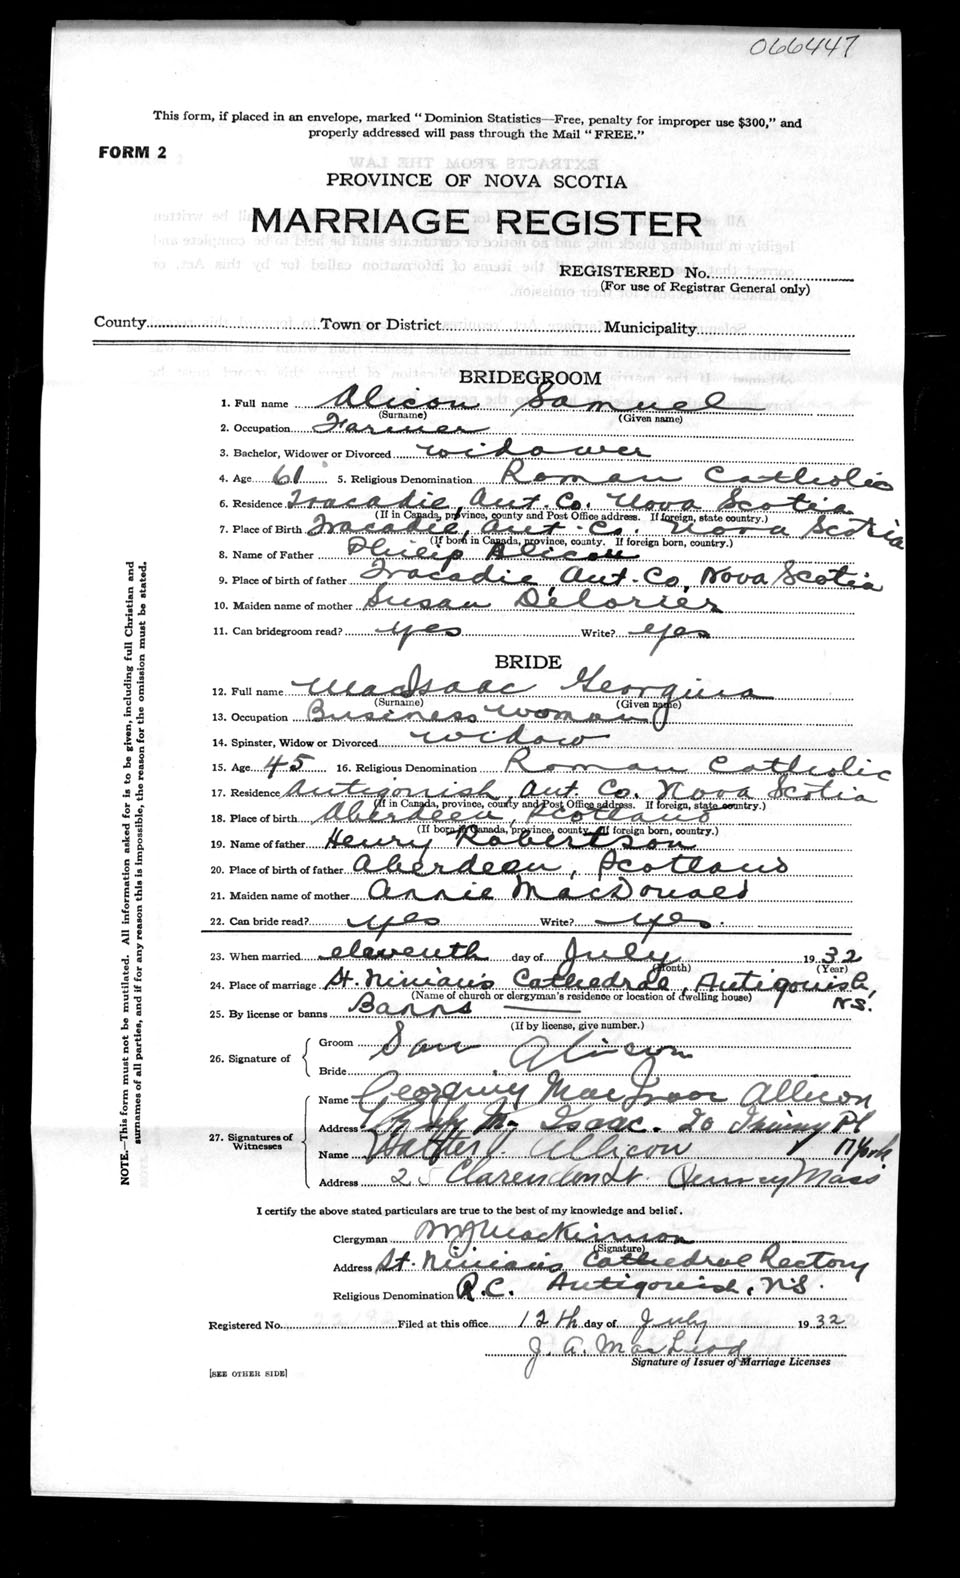 066447
This form, if placed in an envelope, marked "Dominion Statistics—Free, penalty for improper use $300," and
properly addressed will pass through the Mail "FREE."
FORM 2
PROVINCE OF NOVA SCOTIA
MARRIAGE REGISTER
REGISTERED No.
(For use of Registrar General only)
County Town or District Municipality
BRIDEGROOM
1. Full name Alicon Samuel
(Surname) (Given name)
2. Occupation Farmer
3. Bachelor, Widower or Divorced widower
4. Age 61 5. Religious Denomination Roman Catholic
6. Residence Tracadie, Ant. Co. Nova Scotia
(If in Canada, province, county and Post Office address. If foreign, state country.)
7. Place of Birth Tracadie, Ant. Co. Nova Scotia
(If born in Canada, province, county. If foreign born, country.)
8. Name of Father Philip Alicon
9. Place of birth of father Tracadie, Ant. Co, Nova Scotia
10. Maiden name of mother Susan Delorier
11. Can bridegroom read? yes Write? yes
BRIDE
12. Full name MacIsaac Georgina
(Surname) (Given name)
13. Occupation Business woman
14. Spinster, Widow or Divorced widow
15. Age 45 16. Religious Denomination Roman Catholic
17. Residence Antigonish, Ant. Co. Nova Scotia
(If in Canada, province, county and Post Office address. If foreign, state country.)
18. Place of birth Aberdeen, Scotland
(If born in Canada, province, county. If foreign born, country.)
19. Name of father Henry Robertson
20. Place of birth of father Aberdeen, Scotland
21. Maiden name of mother Annie MacDonald
22. Can bride read? yes Write? yes.
23. When married eleventh day of July 1932
(Month) (Year)
24. Place of marriage St. Ninian's Cathedral, Antigonish,
(Name of church or clergyman's residence or location of dwelling house) N.S.
25. By license or banns Banns
(If by license, give number.)
26. Signature of
Groom Sam Alicon
Bride
27. Signatures of
Witnesses
Name Mac Allicon
Address Isaac. 20 Pl
Name Walter J. Allicon N York
Address 25 Clarendon St. Mass
I certify the above stated particulars are true to the best of my knowledge and belief.
Clergyman MacKinnon
(Signature)
Address St. Ninian's Cathedral Rectory
Religious Denomination R.C. Antigonish, N.S.
Registered No. Filed at this office 12th day of July 1932
J. A. MacLeod
Signature of Issuer of Marriage Licenses
[SEE OTHER SIDE]
NOTE.—This form must not be mutilated. All information asked for is to be given, including full Christian and
surnames of all parties, and if for any reason this is impossible, the reason for the omission must be stated.